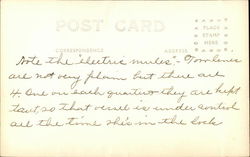 POST CARD
PLACE
STAMP
HERE
CORRESPONDENCE
ADDRESS
Note the "electric mules" - Tow lines
are not very plain but there are
4. One on each quarter they are kept
taut, so that vessel is under control
all the time she's in the lock